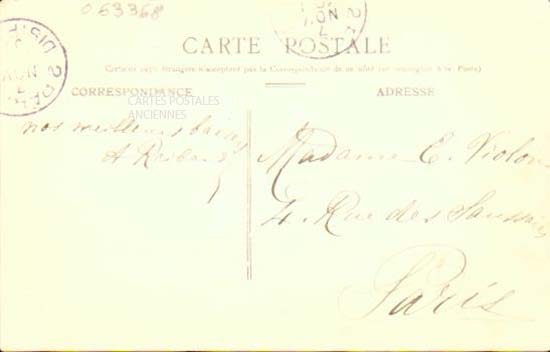 063368
CARTE POSTALE
Certains pays étrangers n'acceptent pas la Correspondance de ce côté (se renseigner à la Poste)
CORRESPONDANCE
ADRESSE
CARTES POSTALES
ANCIENNES
nos meilleurs baisers
A
Madame E. Violon
4. Rue des Saussaies
Paris